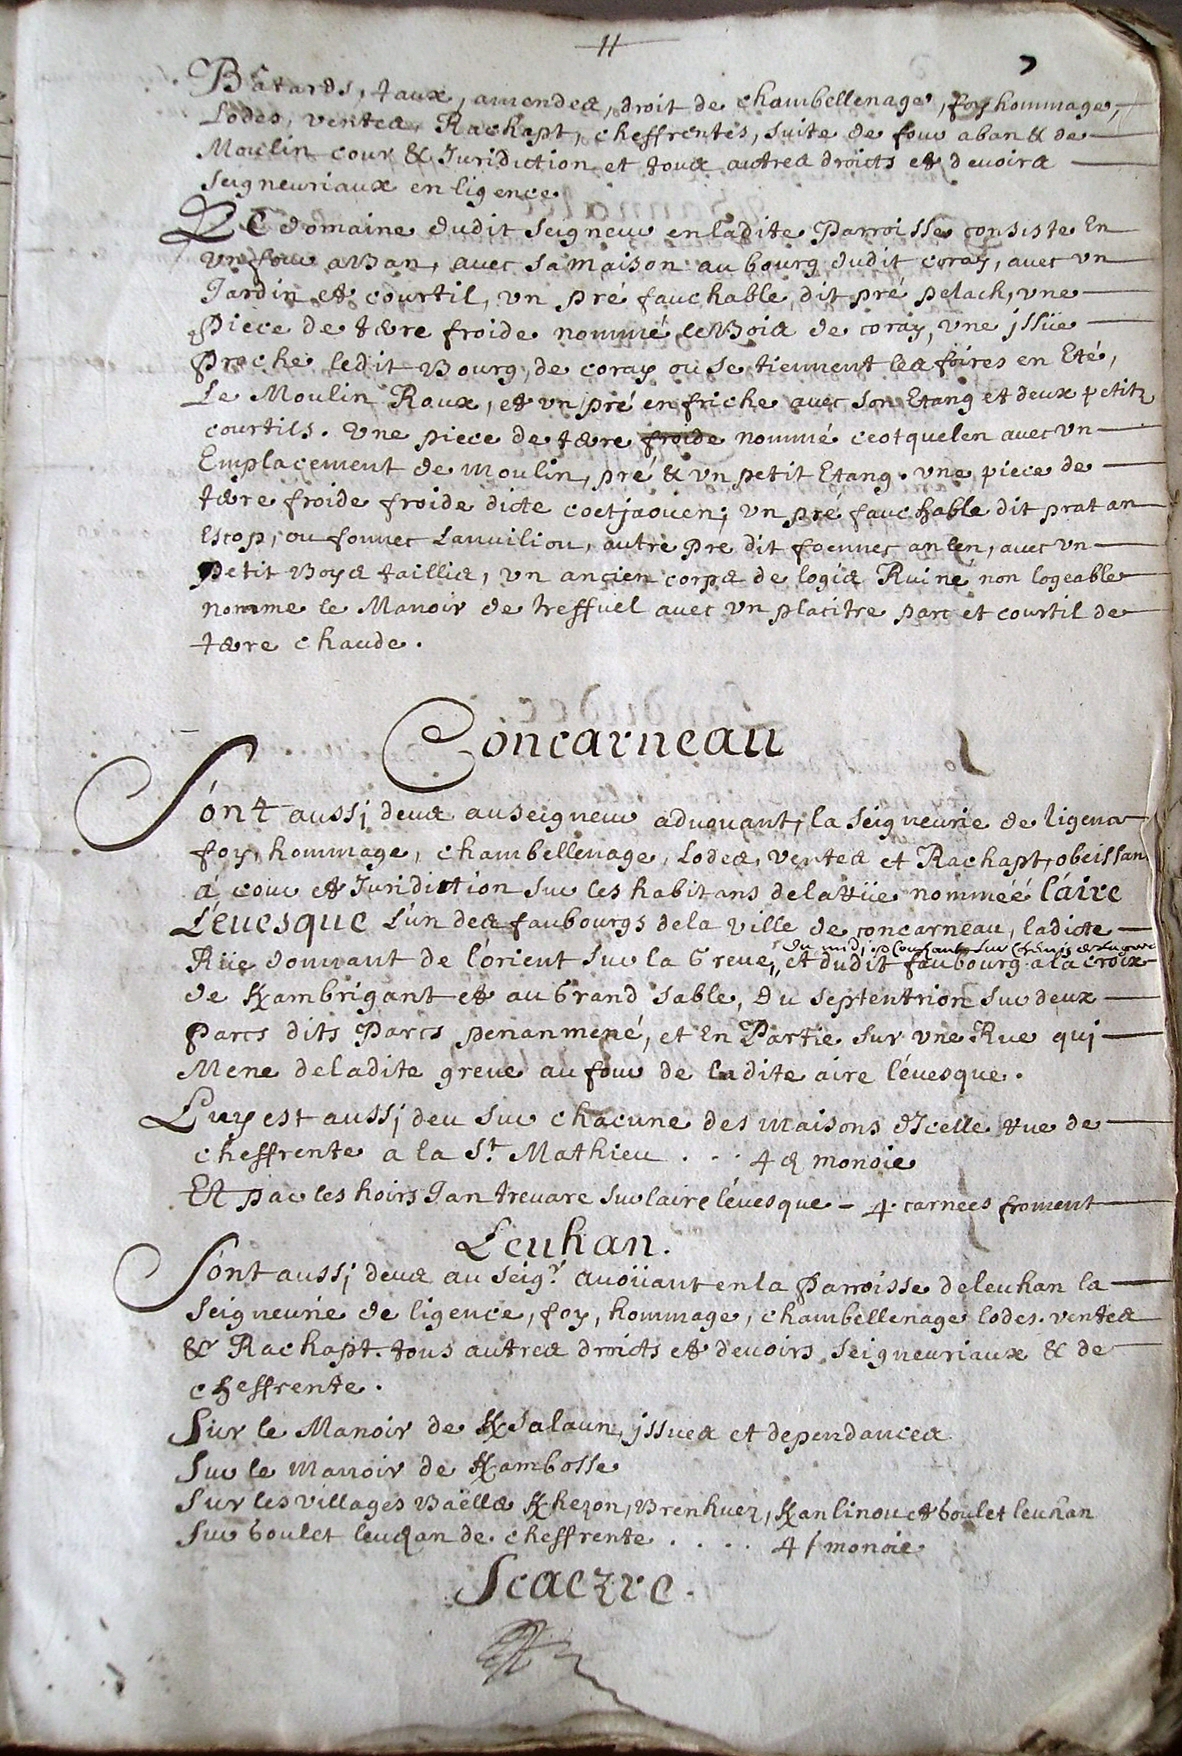 11
7
Bâtards, taux, amendes, droit de chambellenage, foy hommage,
Lodes, ventes, Rachapt, cheffrentes, suite de four a ban & de
Moulin cour & Juridiction et tous autres droicts et devoirs
seigneuriaux en ligence
Le domaine dudit Seigneur en ladite Parroisse consiste En
un four a Ban, avec sa maison au bourg dudit coray, avec vn
Jardin et courtil, vn pré fauchable dit pré pelach, vne
Pièce de tere froide nommé le Bois de coray, vne jssüe
Proche ledit Bourg de coray ou se tiennent les foires en Eté,
Le Moulin Roux, et vn pré en friche avec son Etang et deux petitz
courtils. Vne piece de tere froide nommé ceotquelen avec vn
Emplacement de moulin, pré & vn petit Etang. vne piece de
tere froide froide dicte coetjaouen; vn pré fauchable dit prat an
Escop, ou fonnec Lanviliou, autre pre dit foennec an len, avec vn
petit Boys taillis, vn ancien corps de logis Ruiné non logeable
nomme le Manoir de treffuel avec vn placitre parc et courtil de
tere chaude.
Concarneau
Sont aussj deus au seigneur advouant, la seigneurie de ligence
foy, hommage, chambellenage, Lodes, ventes et Rachapt, obeissan
a cour et Juridiction sur les habitans de la rüe nommée l'aire
L'evesque L'un des faubourgs de la ville de concarneau, ladicte
du midj et Couchant sur Chemin
Rüe donnant de l'orient sur la Greve, et dudit faubourg a la croix
de Kambrigant et au Grand Sable, Du septentrion sur deux
Parcs dits Parcs penanmené, et En Partie sur vne Rue quj
Mene de ladite greve au four de ladite aire l'évesque.
Luy est aussj deu sur chacune des maisons d'Icelle rue de
cheffrente a la St. Mathieu . . . 4 d monoie
Et par les hoirs Jan trevare sur laire lévesque - 4 carnees froment
Leuhan.
Sont aussj deus au seigr. avoüant en la Parroisse de leuhan la
seigneurie de ligence, foy, hommage, chambellenage lodes. ventes
& Rachapt. tous autres droicts et devoirs seigneuriaux & de
cheffrente.
Sur le Manoir de Ksalaun, jssues et dependances
Sur le manoir de Kambosse
Sur les villages Baëlls Khezon, Brenhuez, Kanlinou et Goulet leuhan
Sur Goulet leuhan de cheffrente . . . . 4 s monoie
Scaezre.